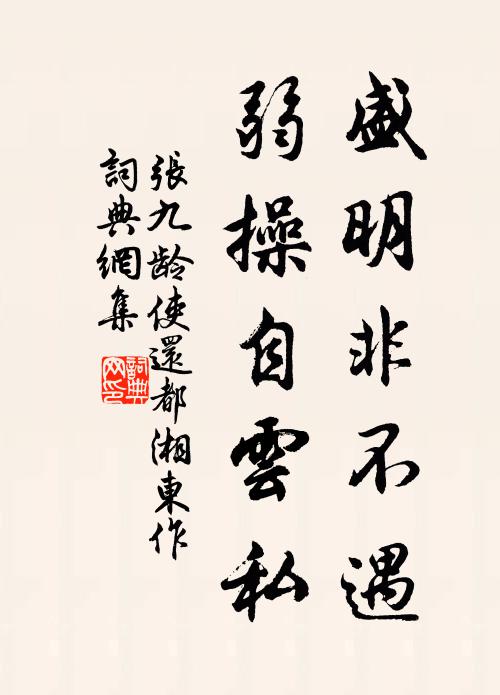 盛明非不遇
弱操自雲私
張九龄使還都湘東作
詞典網集
詞典
网印